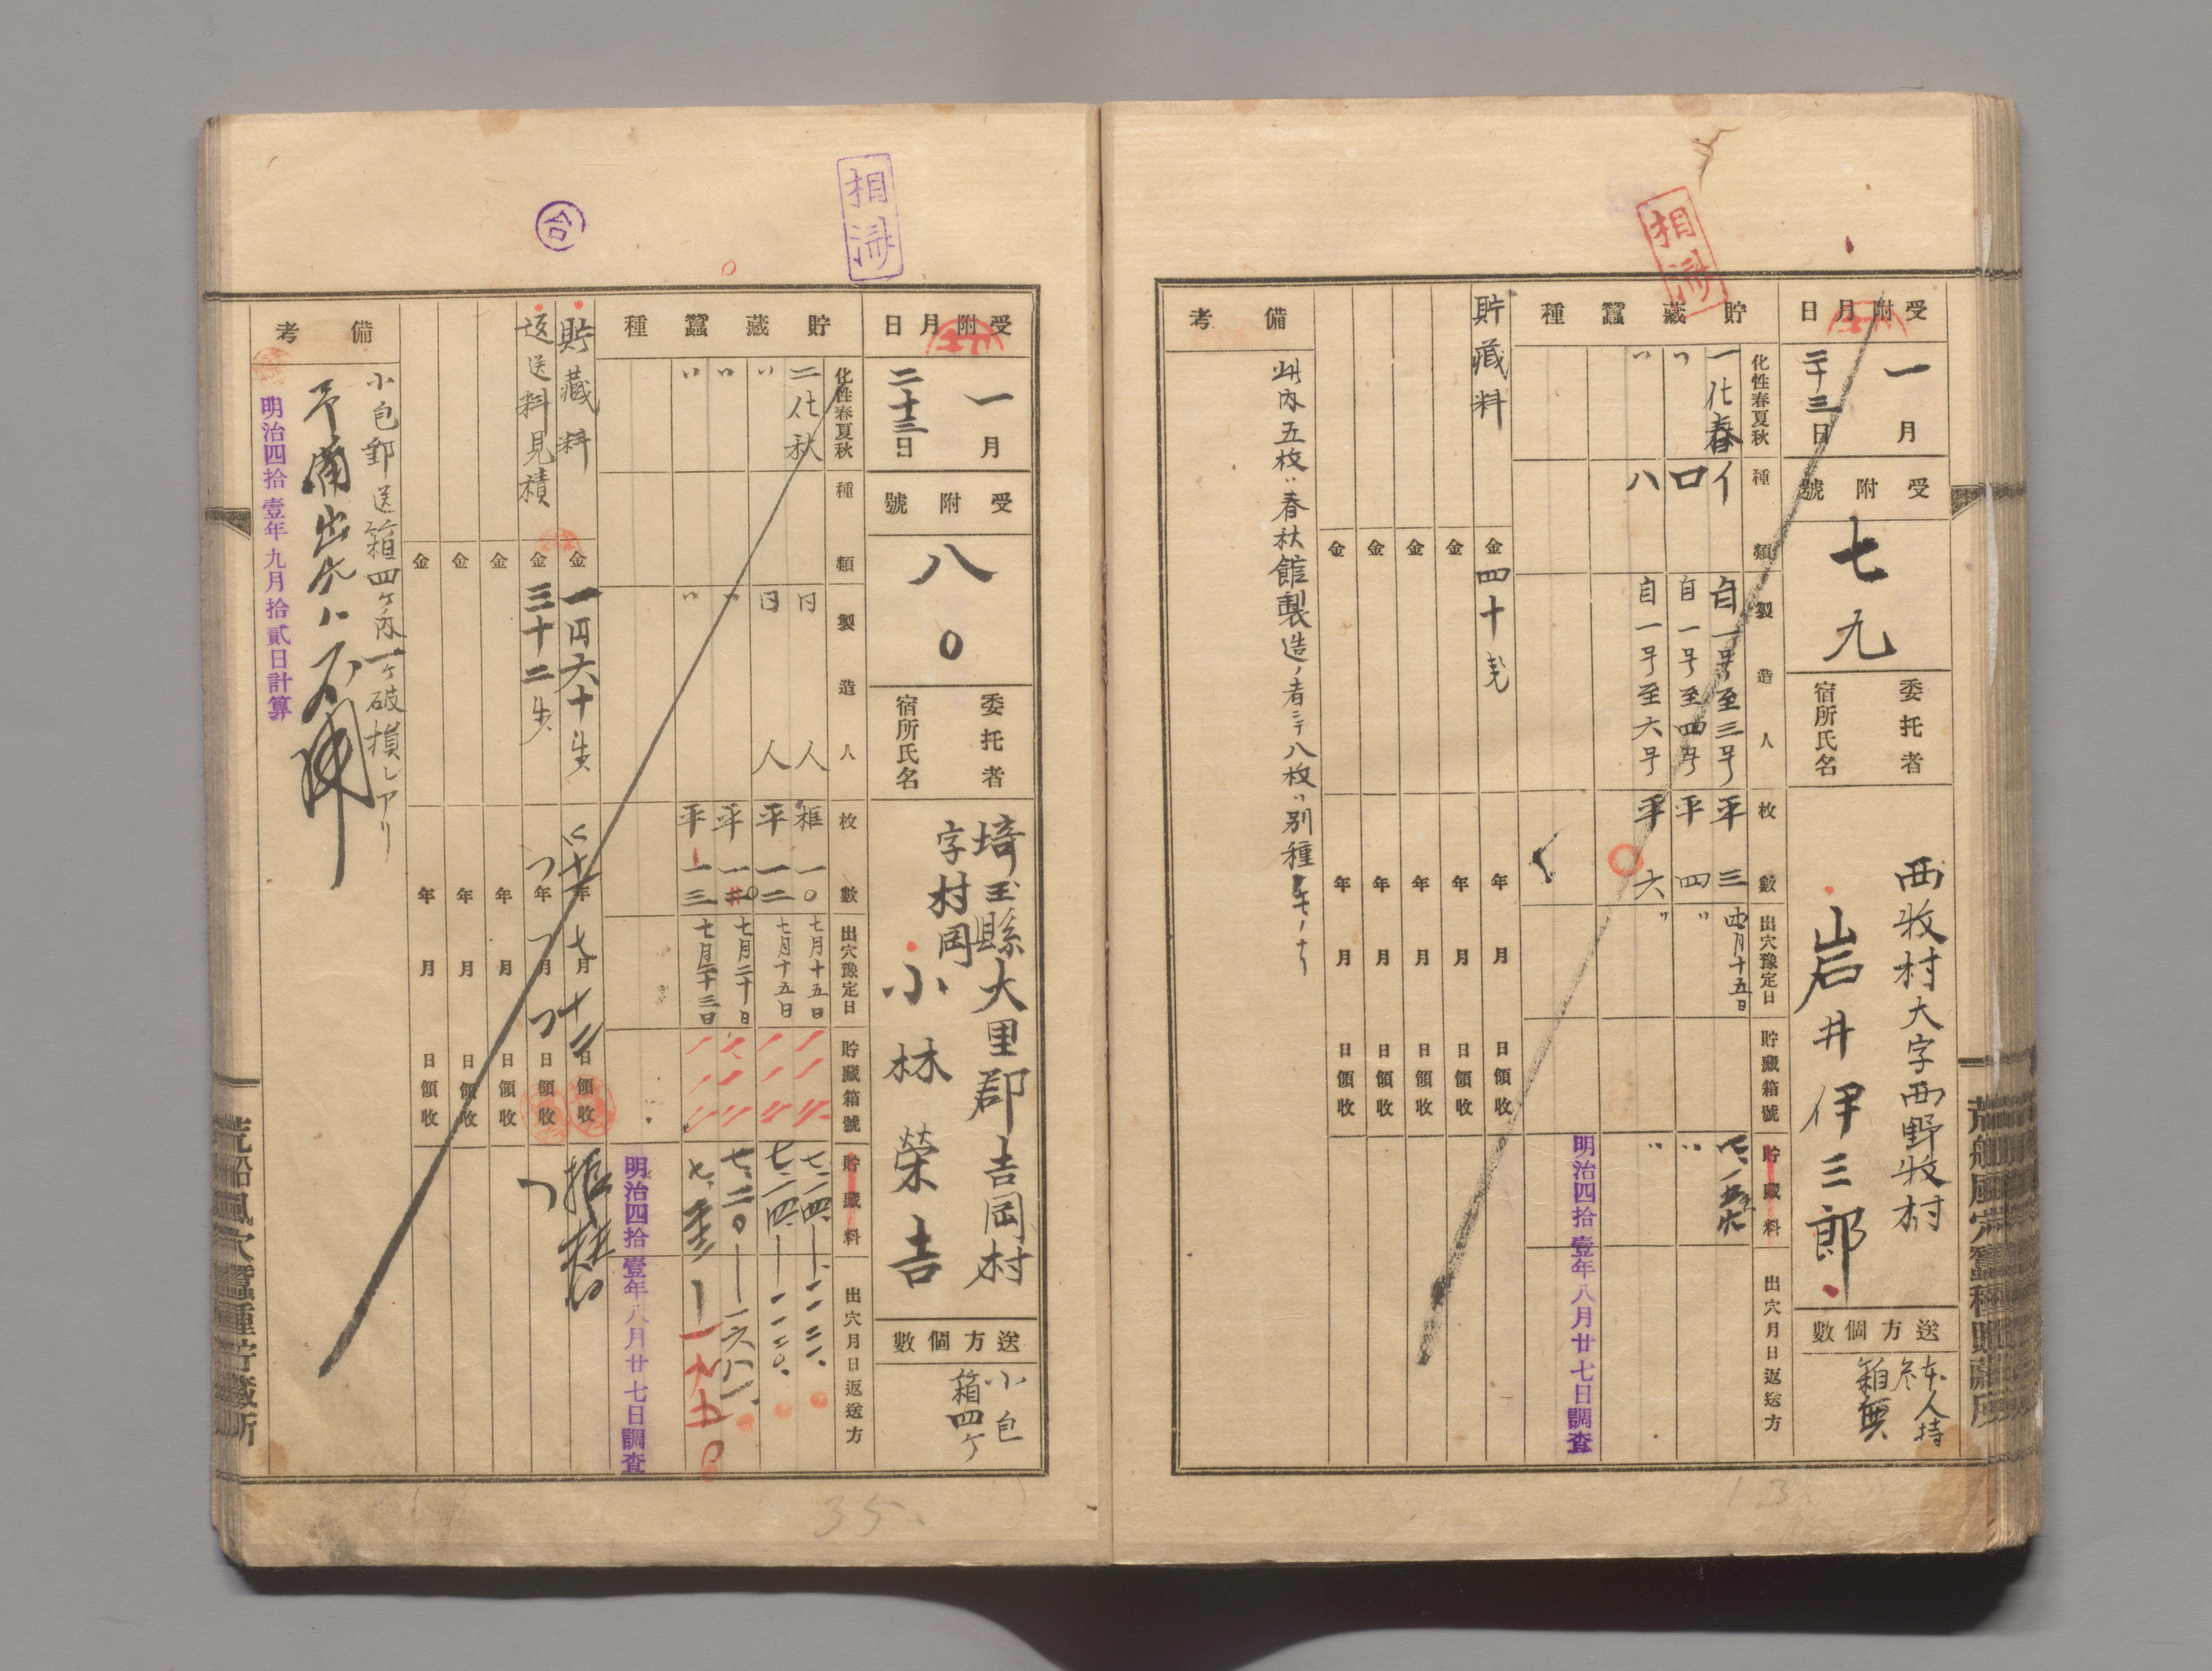 相済
受附月日
一月
二十三日
受附號
七九
委托者
宿所氏名
西牧村大字西野牧村
岩井伊三郎
送方個數
本人持参
箱無
貯藏蠶種
化性春夏秋
種類
製造人
枚數
出穴豫定日
貯藏箱號
貯藏料
出穴月日返送方
一化春 イ 自一号至三号 平三 四月十五日
〃 ロ 自一号至四号 平四 〃
〃 ハ 自一号至六号 平六 〃
明治四拾壹年八月廿七日調査
貯藏料 金四十戔 年 月 日領收
金 年 月 日領收
金 年 月 日領收
金 年 月 日領收
金 年 月 日領收
備考
此内五枚ハ春秋館製造ノ者ニテ八枚ハ別種
荒船風穴蠶種貯藏所
13
相済
合
受附月日
一月
二十三日
受附號
八〇
委托者
宿所氏名
埼玉縣大里郡吉岡村
字村岡
小林榮吉
送方個數
小包
箱四ケ
貯藏蠶種
化性春夏秋
種類
製造人
枚數
出穴豫定日
貯藏箱號
貯藏料
出穴月日返送方
二化秋 仝人 框一〇 七月十五日
〃 仝人 平一二 七月十五日
〃 〃 平一 七月二十日
〃 〃 平一三 七月二十三日
明治四拾壹年八月廿七日調査
貯藏料 金一円六十戔 年七月十二日領收
返送料見積 金三十二戔 年 月 日領收
金 年 月 日領收
金 年 月 日領收
金 年 月 日領收
備考
小包郵送箱四ケ内一ケ破損シアリ
明治四拾壹年九月拾貳日計算
荒船風穴蠶種貯藏所
35.